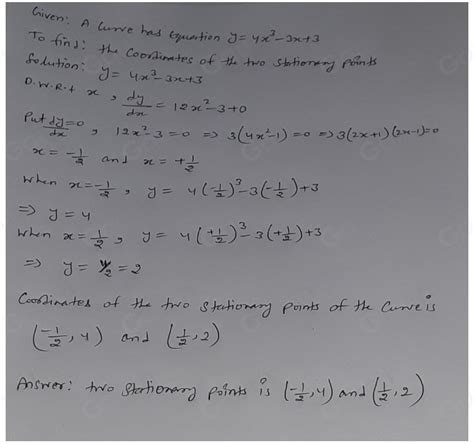 Given: A Curve has Equation y = 4x³-3x+3
To find: the Coordinates of the two Stationary points
Solution: y = 4x³-3x+3
D.W.R.t x, dy/dx = 12x²-3+0
Put dy/dx=0, 12x²-3=0 ⇒ 3(4x²-1)=0 ⇒ 3(2x+1)(2x-1)=0
x = -1/2 and x = +1/2
When x=-1/2, y = 4(-1/2)³-3(-1/2)+3
⇒ y = 4
When x=1/2, y = 4(+1/2)³-3(+1/2)+3
⇒ y = = 2
Coordinates of the two Stationary points of the Curve is
(-1/2, 4) and (1/2, 2)
Answer: two Stationary points is (-1/2, 4) and (1/2, 2)